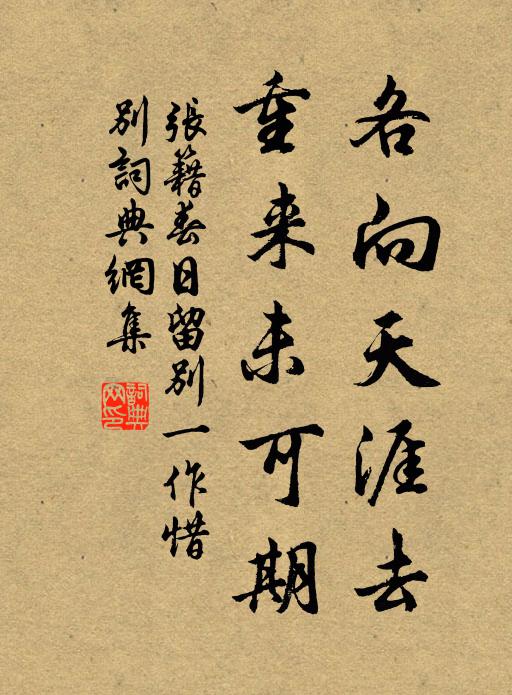 各向天涯去
重来未可期
張籍春日留別一作惜
別詞典網集
詞典
网印